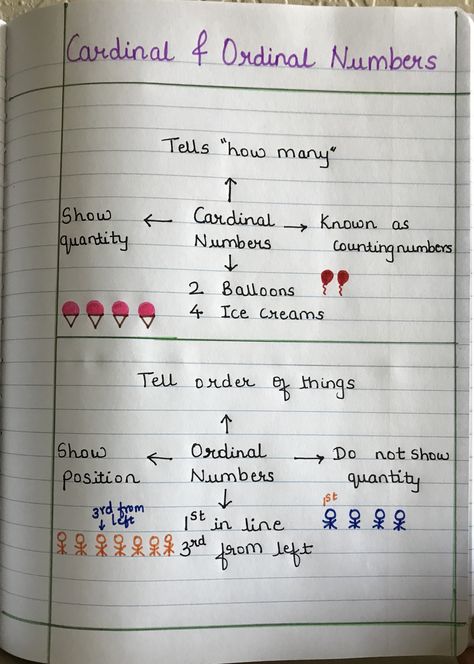 Cardinal & Ordinal Numbers
Tells "how many"
Show quantity ← Cardinal Numbers → Known as counting numbers
2 Balloons
4 Ice Creams
Tell order of things
Show position ← Ordinal Numbers → Do not show quantity
3rd from left
1st in line
1st
3rd from left